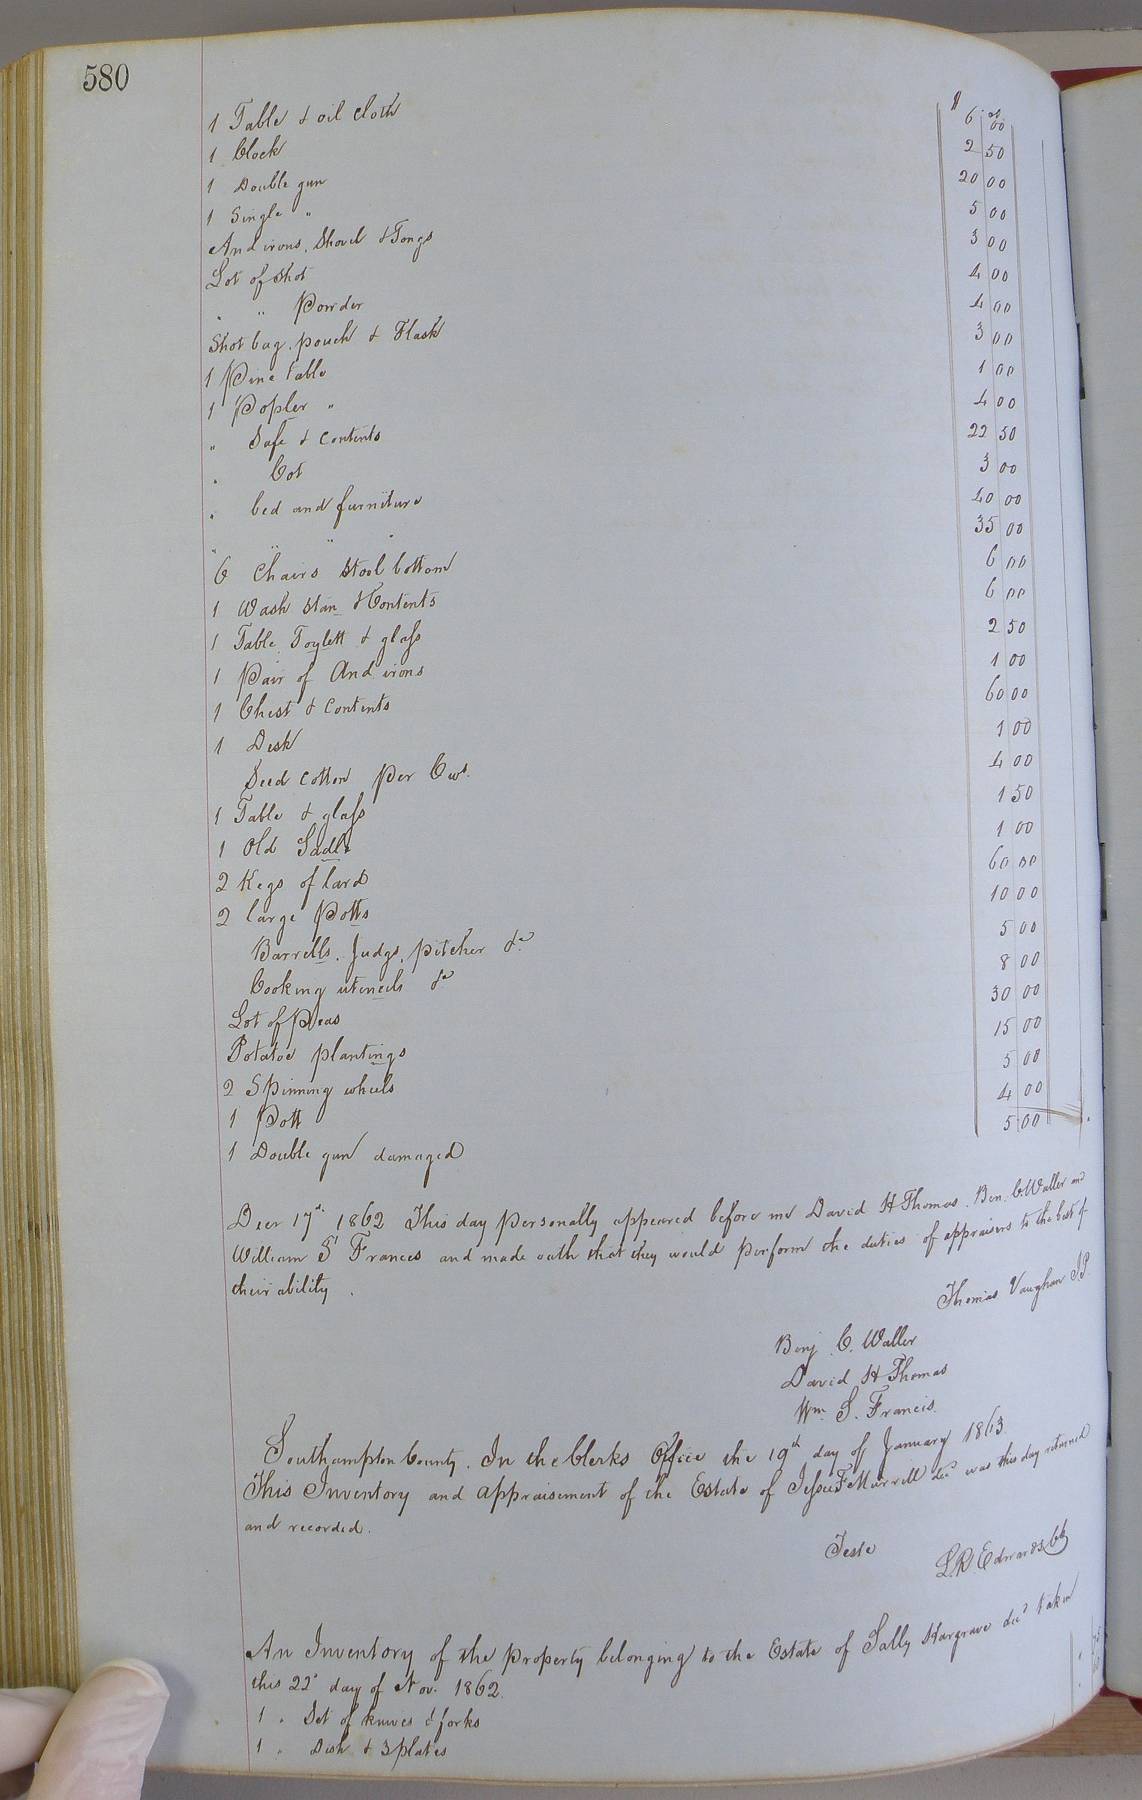 580
1 Table & oil cloth $ 6 00
1 Clock 2 50
1 Double gun 20 00
1 Single " 5 00
And irons, Shovel & Tongs 3 00
Lot of Shot 4 00
" " Powder 4 00
Shot bag, pouch & Flask 3 00
1 Pine table 1 00
1 Popler " 4 00
" Safe & contents 22 50
" Cot 3 00
" bed and furniture 40 00
" " " " 35 00
6 Chairs Stool bottom 6 00
1 Wash Stan & Contents 6 00
1 Table Toylett & glass 2 50
1 Pair of And irons 1 00
1 Chest & Contents 60 00
1 Desk 1 00
Seed cotton per Cwt. 4 00
1 Table & glass 1 50
1 Old Sadle 1 00
2 Kegs of lard 60 00
2 large Potts 10 00
Barrells, Judgs, pitcher &c 5 00
Cooking utencils &c 8 00
Lot of Peas 30 00
Potatoe plantings 15 00
2 Spinning wheels 5 00
1 Pott 4 00
1 Double gun damaged 5 00
Decr 17th 1862 This day personally appeared before me David H Thomas, Ben. C. Waller and
William S Frances and made oath that they would perform the duties of appraisers to the best of
their ability.
Thomas Vaughan J.P.
Benj. C. Waller
David H Thomas
Wm. S. Francis.
Southampton County. In the Clerks Office the 19th day of January 1863.
This Inventory and appraisement of the Estate of Jessee F Murrell decd was this day returned
and recorded.
Teste L. R. Edwards Clk
An Inventory of the property belonging to the Estate of Sally Hargrave decd taken
this 22d day of Nov. 1862.
1 " Set of knives & forks
1 " Dish & 3 plates